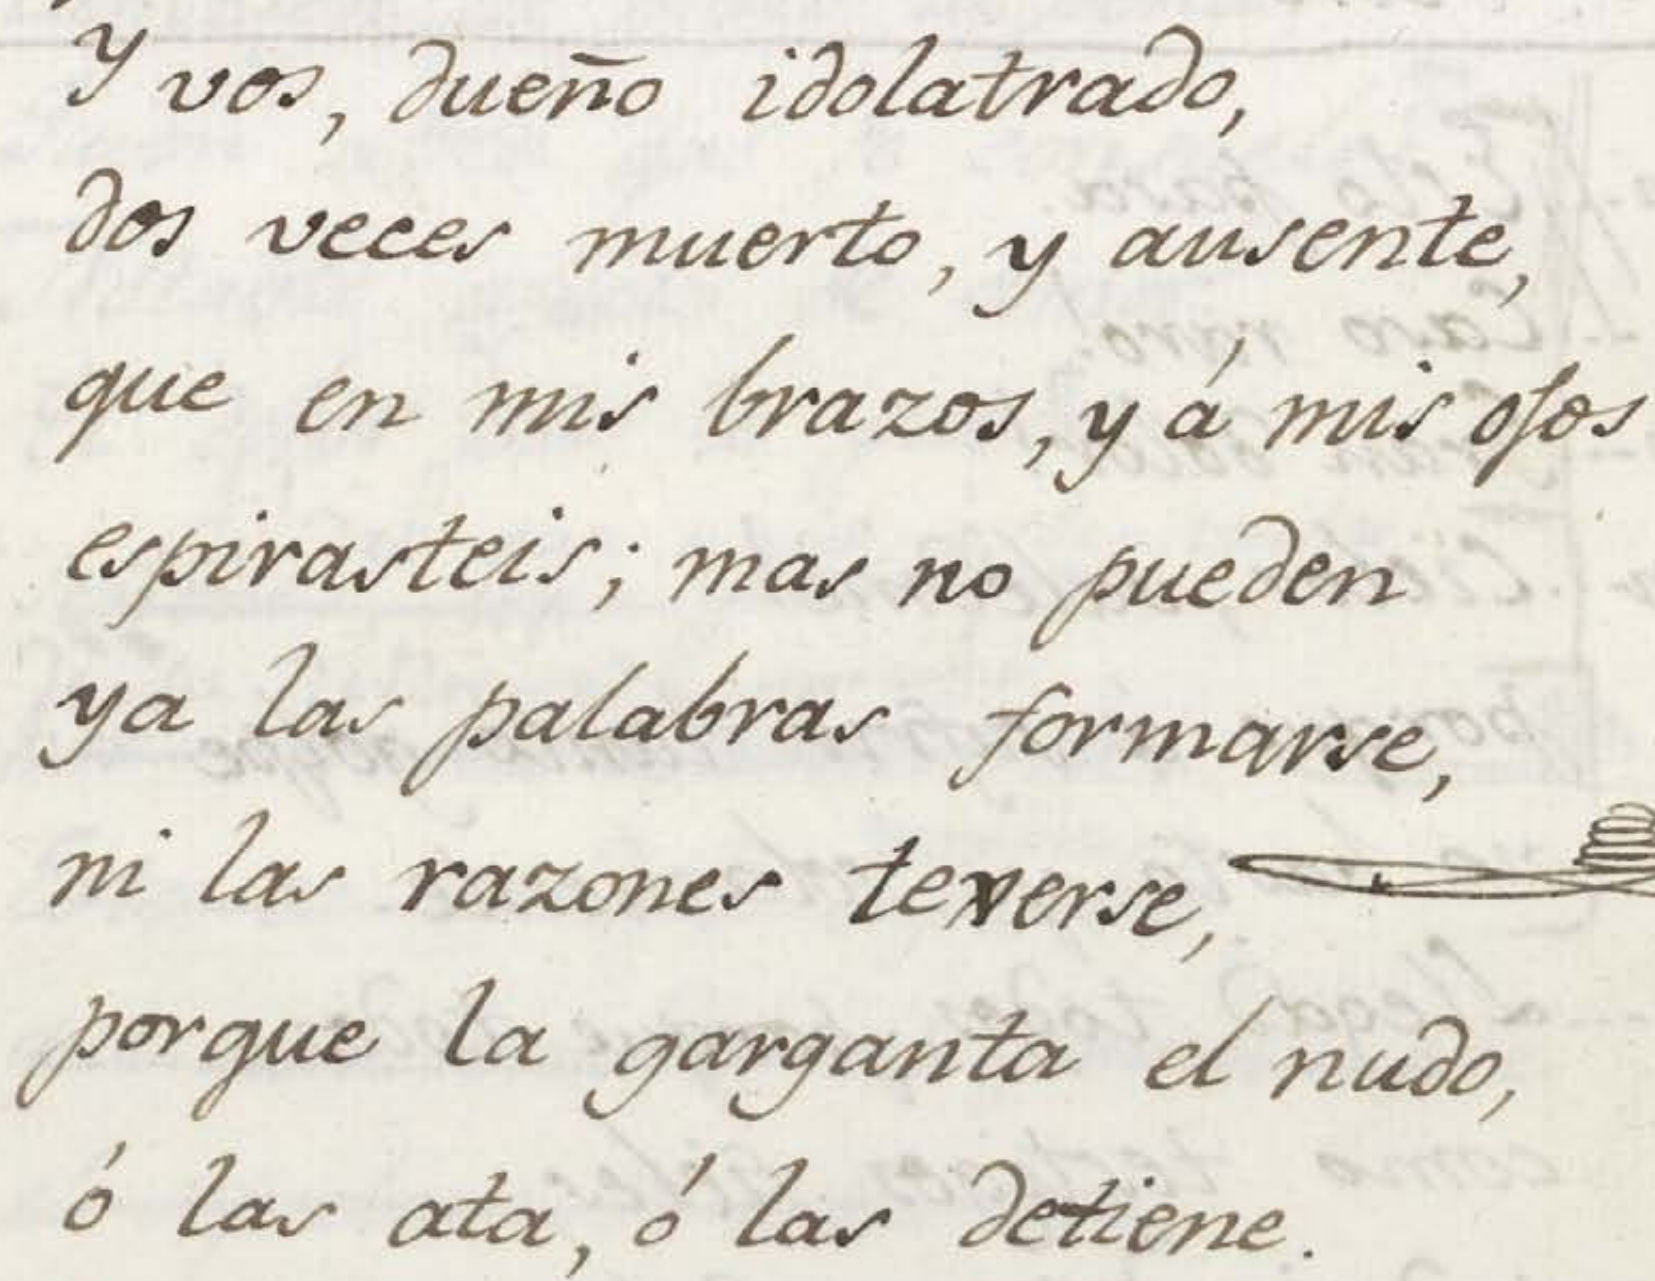 Y vos, dueño idolatrado,
dos veces muerto, y ausente,
que en mis brazos, y á mis ojos
espirasteis; mas no pueden
ya las palabras formarse,
ni las razones texerse,
porque la garganta el nudo,
ó las ata, ó las detiene.